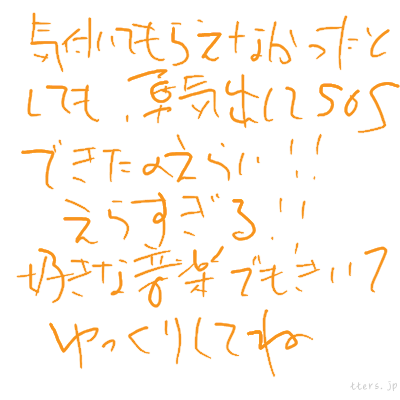 気付いてもらえなかったと
しても、勇気出してSOS
できたのえらい!!
えらすぎる!!
好きな音楽でもきいて
ゆっくりしてね
tters.jp